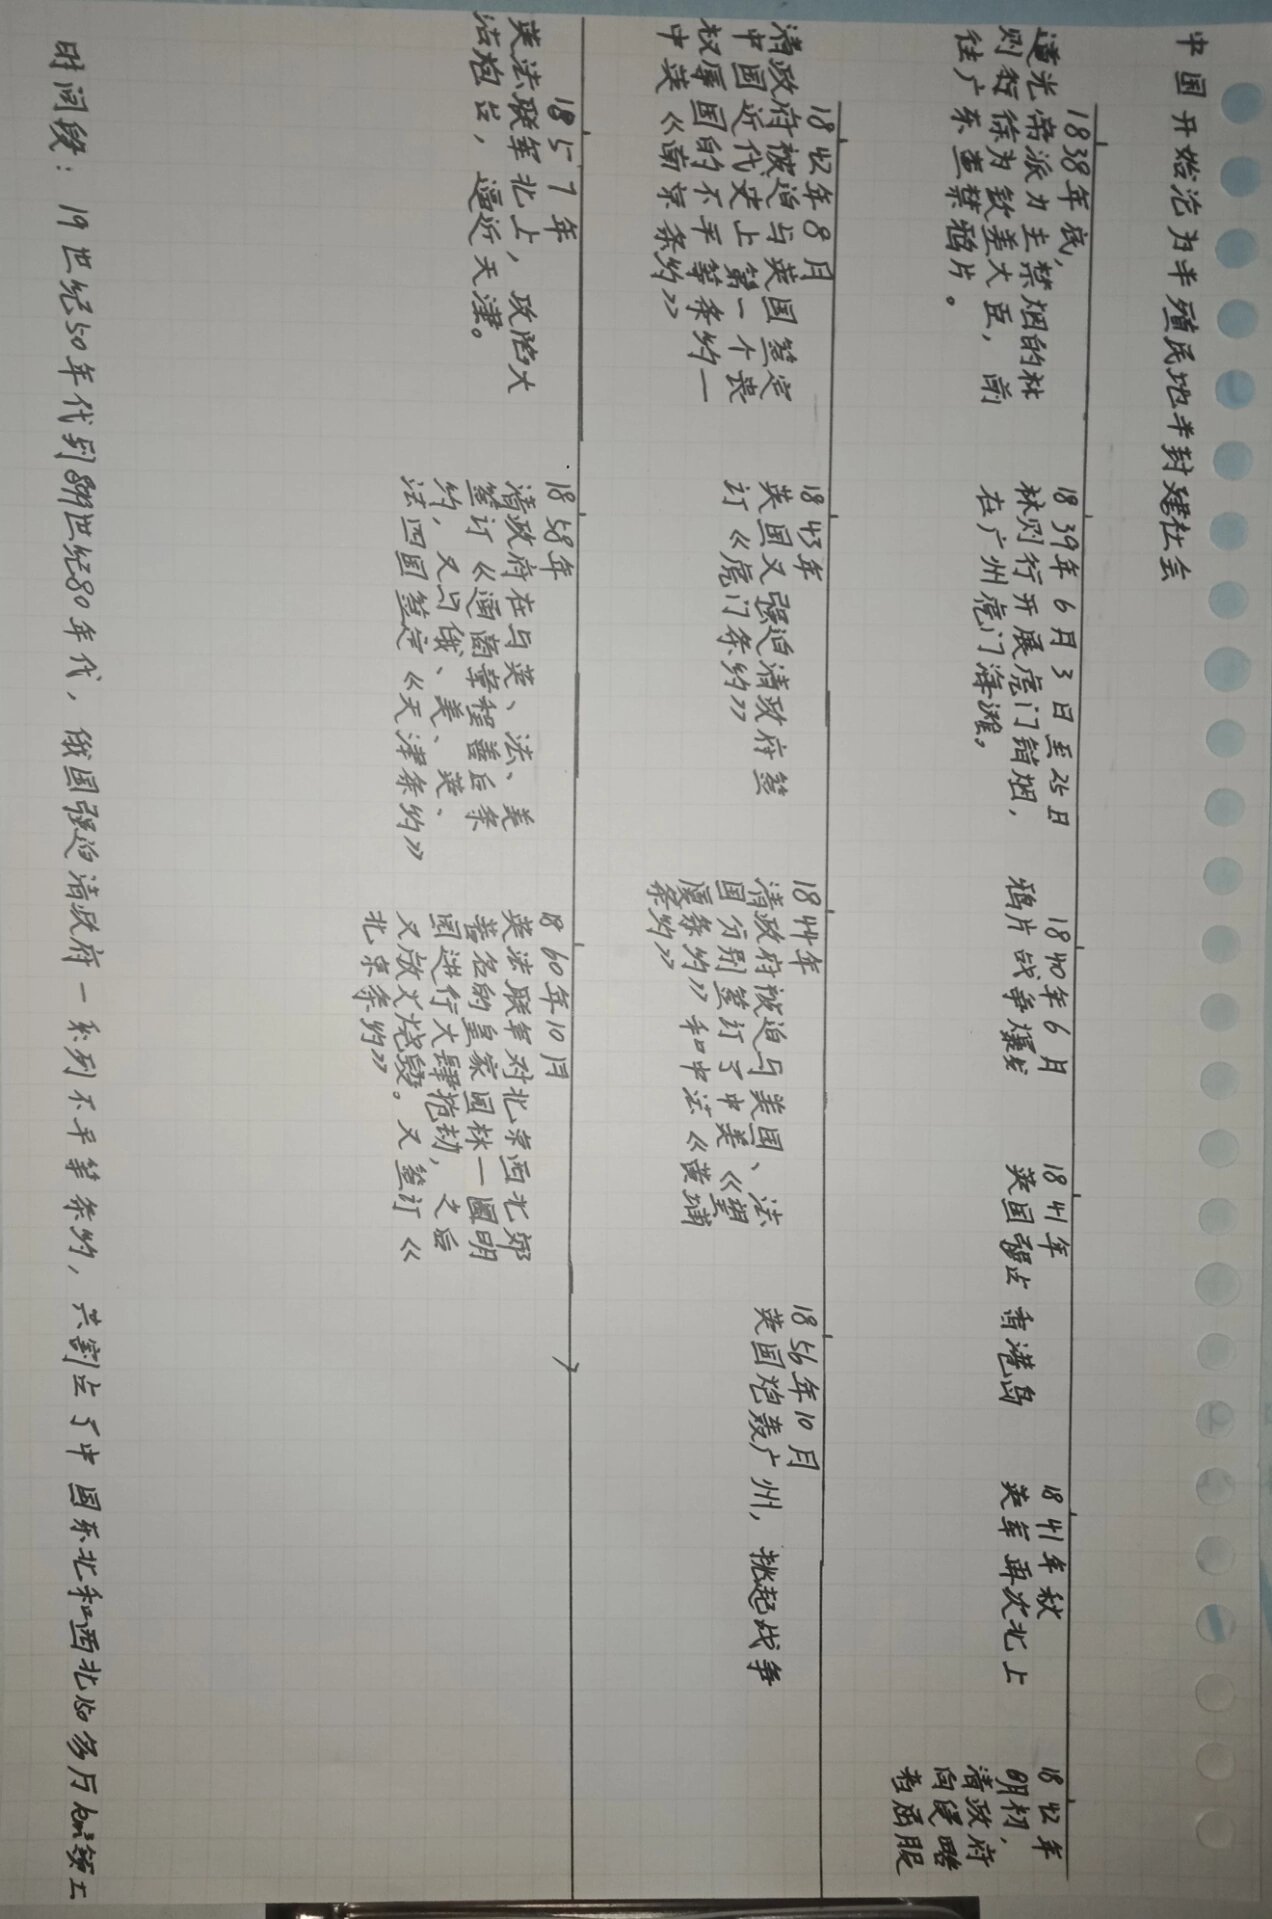 中国开始沦为半殖民地半封建社会
1838年底,
道光帝派力主禁烟的林
则行徐为钦差大臣，前
往广东查禁鸦片。
1839年6月3日至25日
林则行开展虎门销烟，
在广州虎门海滩。
1840年6月
鸦片战争爆发
1841年
英国强占香港岛
1841年秋
英军再次北上
1842年
8月初，
清政府
向侵略
者屈服
1842年8月
清政府被迫与英国签定
中国近代史上第一个丧
权辱国的不平等条约一
中英《南京条约》
1843年
英国又强迫清政府签
订《虎门条约》
1844年
清政府被迫与美国、法
国分别签订了中美《望
厦条约》和中法《黄埔
条约》
1856年10月
英国炮轰广州，挑起战争
1857年
英法联军北上，攻陷大
沽炮台，逼近天津。
1858年
清政府在与英、法、美
签订《通商章程善后条
约，又与俄、美、英、
法四国签定《天津条约》
1860年10月
英法联军对北京西北郊
著名的皇家园林一圆明
园进行大肆抢劫，之后
又放火烧毁。又签订《
北京条约》
时间段：19世纪50年代到19世纪80年代，俄国强迫清政府一系列不平等条约，共割占了中国东北和西北150多万km²领工